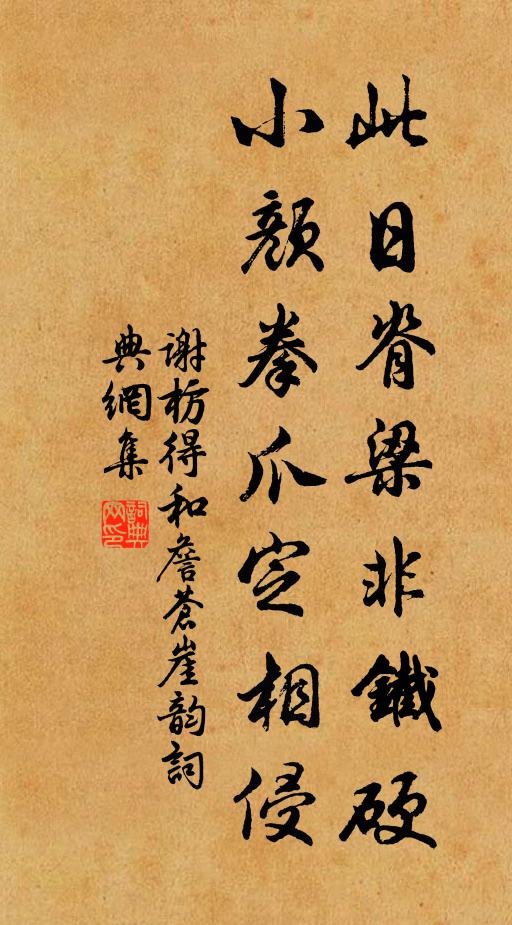 此日脊梁非鐵硬
小顏拳爪定相侵
謝枋得和詹蒼崖韵詞
典網集
詞典网印